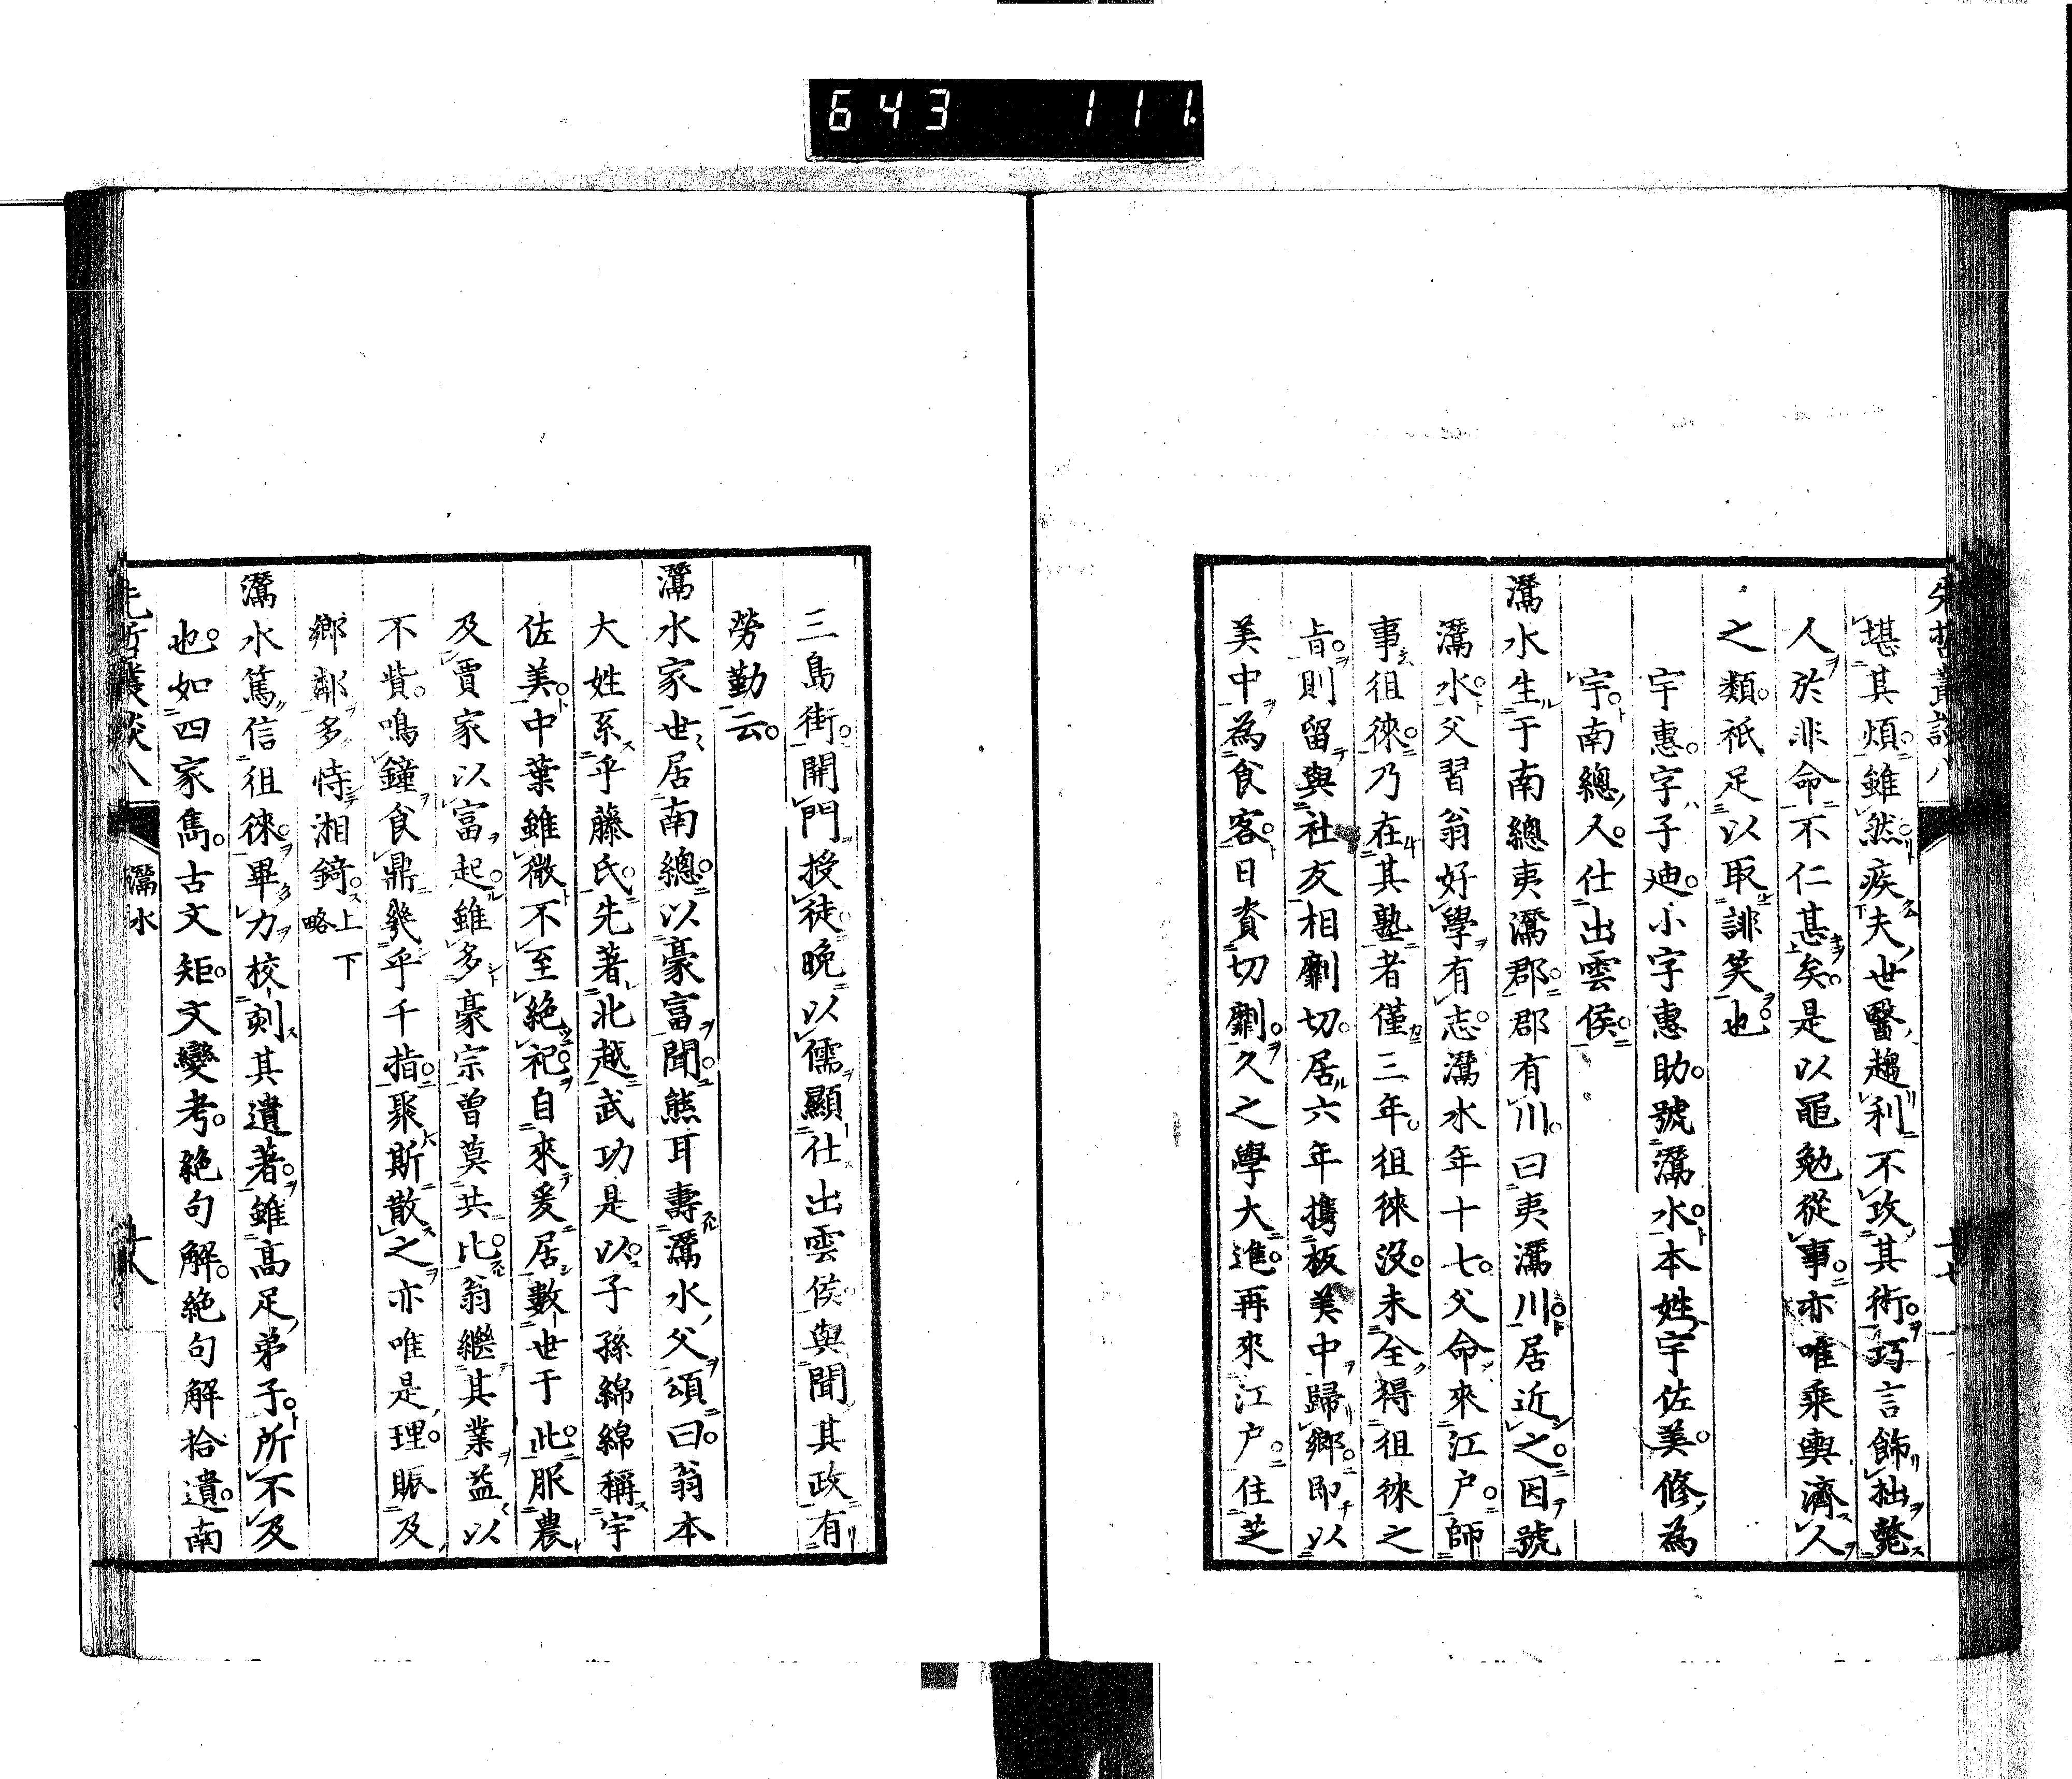 643 111.
先哲叢談八
堪其煩。雖然疾夫世醫趨利不攻其術。巧言飾拙。斃
人於非命不仁甚矣。是以黽勉從事。亦唯乘輿濟人
之類。祇足以取誹笑也。
宇惠。字子迪。小字惠助。號灊水。本姓宇佐美。修為
宇。南總人。仕出雲侯。
灊水生于南總夷灊郡。郡有川。曰夷灊川。居近之。因號
灊水。父習翁好學有志。灊水年十七。父命來江戶。師
事徂徠。乃在其塾者僅三年。徂徠沒。未全得徂徠之
旨。則留與社友相劘切。居六年。攜板美中歸鄉。即以
美中為食客。日資切劘。久之學大進。再來江戶。住芝
十七
三島街。開門授徒。晚以儒顯。仕出雲侯。與聞其政。有
勞勤云。
灊水家世居南總。以豪富聞。熊耳壽灊水父頌曰。翁本
大姓系乎藤氏。先著北越武功。是以子孫綿綿稱宇
佐美。中葉雖微不至絕祀。自來爰居數世于此。服農
及賈家以富起。雖多豪宗曾莫共比。翁繼其業益以
不貲。鳴鐘食鼎幾乎千指。聚斯散之亦唯是理。賑及
鄉鄰多恃湘錡。上下略
灊水篤信徂徠。畢力校刻其遺著。雖高足弟子。所不及
也。如四家雋。古文矩。文變考。絕句解。絕句解拾遺。南
先哲叢談八
灊水
十八